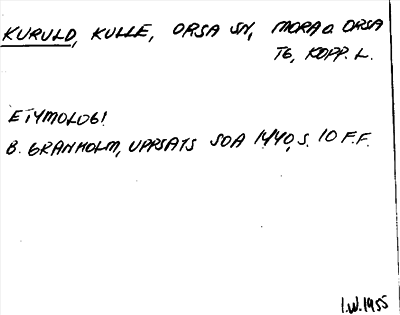 KURULD, KULLE, ORSA SN, MORA O. ORSA
TG, KOPP. L.
ETYMOLOGI
B. GRANHOLM, UPPSATS SOA 1440, S. 10 F.F.
I.W. 1955